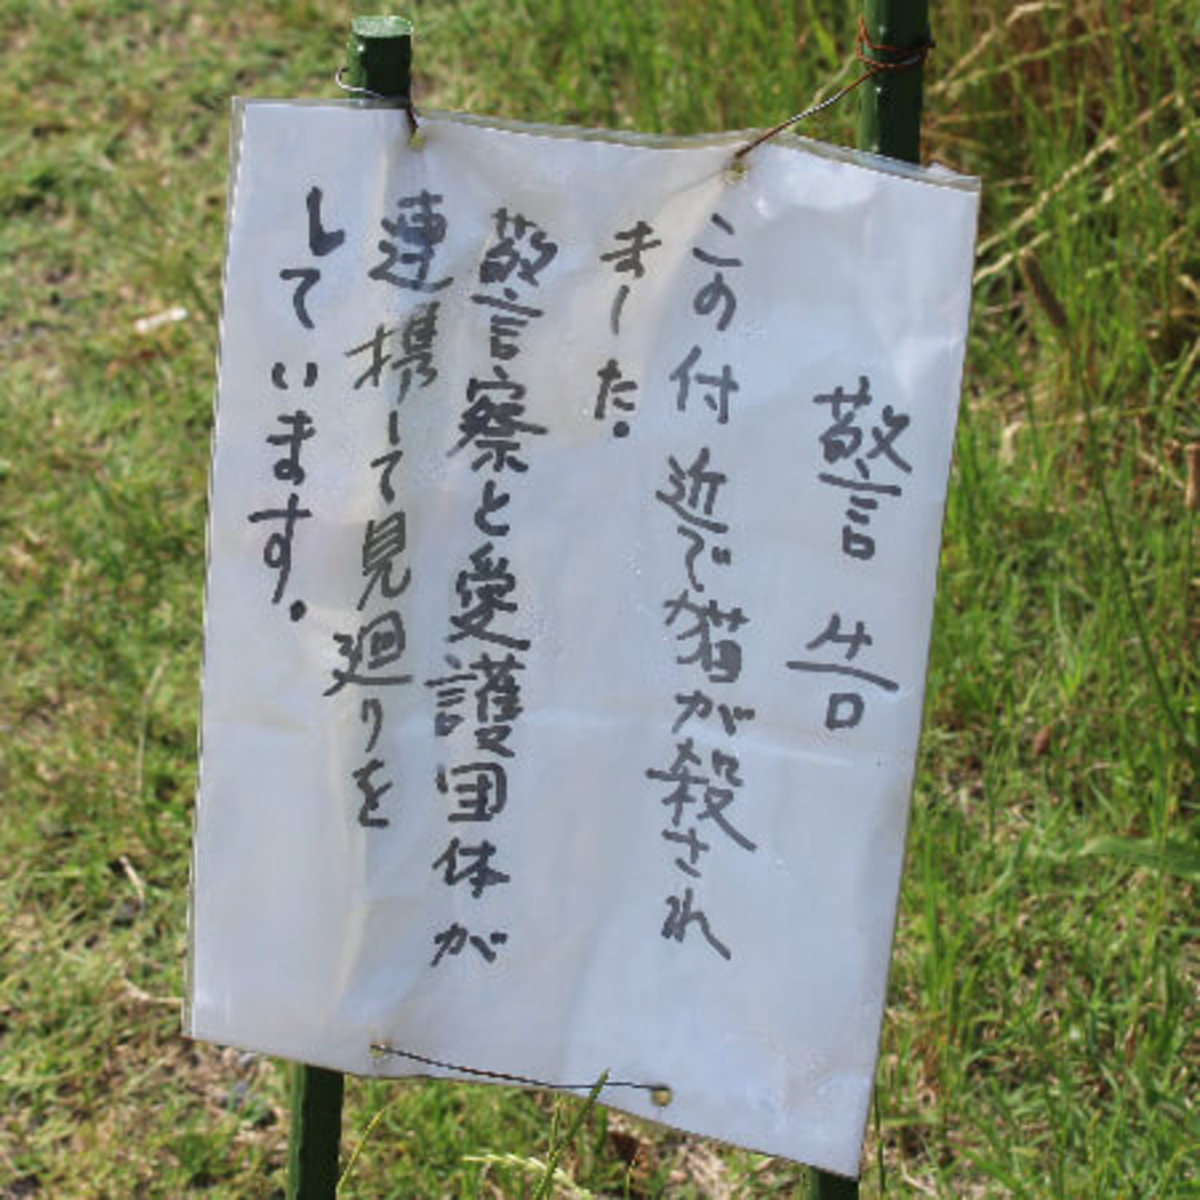 警告
この付近で猫が殺され
ました.
警察と愛護団体が
連携して見廻りを
しています.